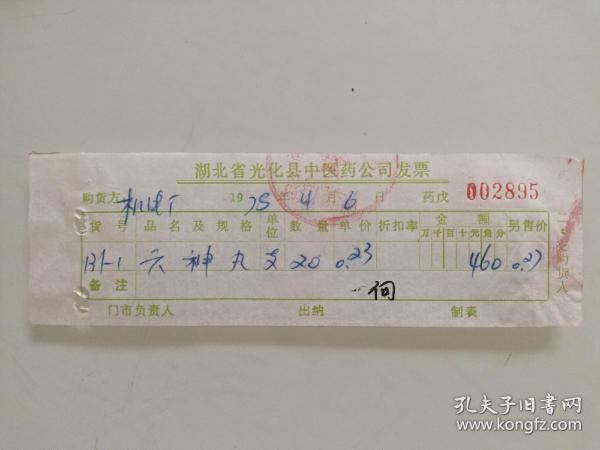 湖北省光化县中医药公司发票
购货方 1975年4月6日 药戊 002895
货号 品名及规格 单位 数量 单价 折扣率 金额 万千百十元角分 另售价
131-1 六神丸 支 20 0.23 460 0.27
备注
门市负责人 出纳 制表
孔夫子旧书网
www.kongfz.com